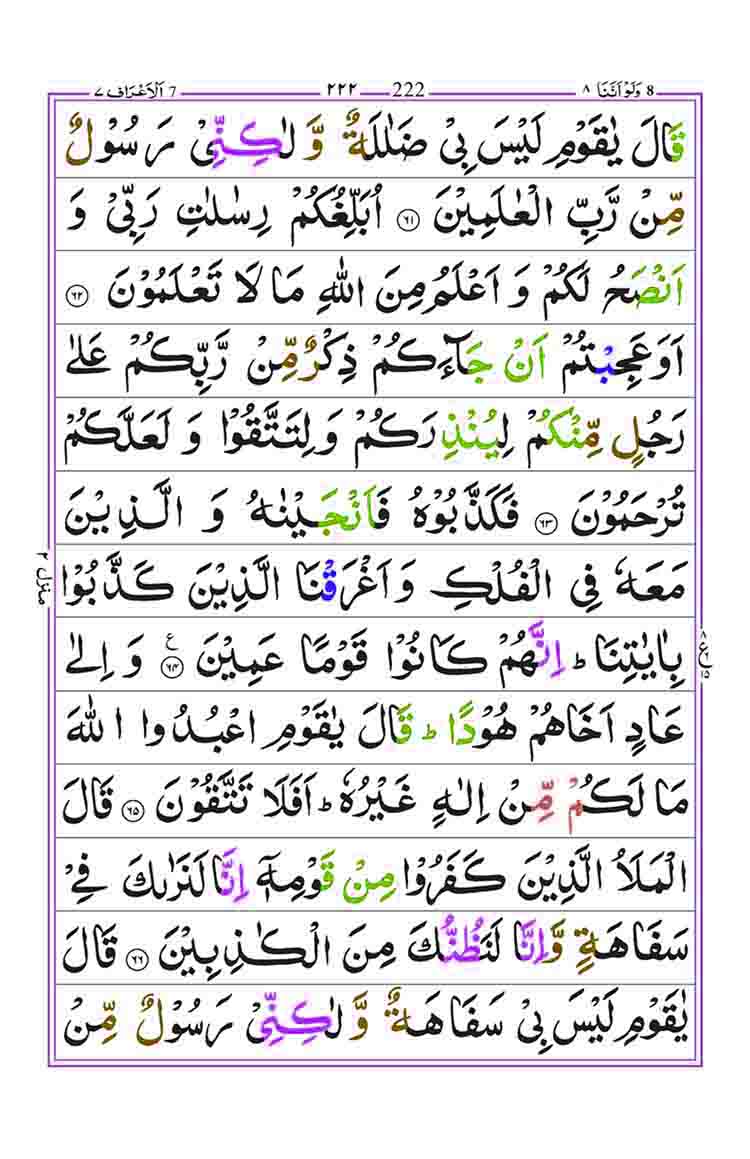 8 وَلَوْ اَنَّنَا ٨ 222 ٢٢٢ 7 اَلْاَعْرَاف ٧
قَالَ يٰقَوْمِ لَيْسَ بِىْ ضَلٰلَةٌ وَّ لٰكِنِّىْ رَسُوْلٌ
مِّنْ رَّبِّ الْعٰلَمِيْنَ ﴿٦١﴾ اُبَلِّغُكُمْ رِسٰلٰتِ رَبِّىْ وَ
اَنْصَحُ لَكُمْ وَ اَعْلَمُ مِنَ اللّٰهِ مَا لَا تَعْلَمُوْنَ ﴿٦٢﴾
اَوَعَجِبْتُمْ اَنْ جَآءَكُمْ ذِكْرٌ مِّنْ رَّبِّكُمْ عَلٰى
رَجُلٍ مِّنْكُمْ لِيُنْذِرَكُمْ وَ لِتَتَّقُوْا وَ لَعَلَّكُمْ
تُرْحَمُوْنَ ﴿٦٣﴾ فَكَذَّبُوْهُ فَاَنْجَيْنٰهُ وَ الَّذِيْنَ
مَعَهٗ فِى الْفُلْكِ وَ اَغْرَقْنَا الَّذِيْنَ كَذَّبُوْا
بِاٰيٰتِنَا ؕ اِنَّهُمْ كَانُوْا قَوْمًا عَمِيْنَ ﴿٦٤﴾ ع وَ اِلٰى
عَادٍ اَخَاهُمْ هُوْدًا ؕ قَالَ يٰقَوْمِ اعْبُدُوا اللّٰهَ
مَا لَكُمْ مِّنْ اِلٰهٍ غَيْرُهٗ ؕ اَفَلَا تَتَّقُوْنَ ﴿٦٥﴾ قَالَ
الْمَلَاُ الَّذِيْنَ كَفَرُوْا مِنْ قَوْمِهٖۤ اِنَّا لَنَرٰىكَ فِىْ
سَفَاهَةٍ وَّ اِنَّا لَنَظُنُّكَ مِنَ الْكٰذِبِيْنَ ﴿٦٦﴾ قَالَ
يٰقَوْمِ لَيْسَ بِىْ سَفَاهَةٌ وَّ لٰكِنِّىْ رَسُوْلٌ مِّنْ
منزل ٢
٨ ع ١٥